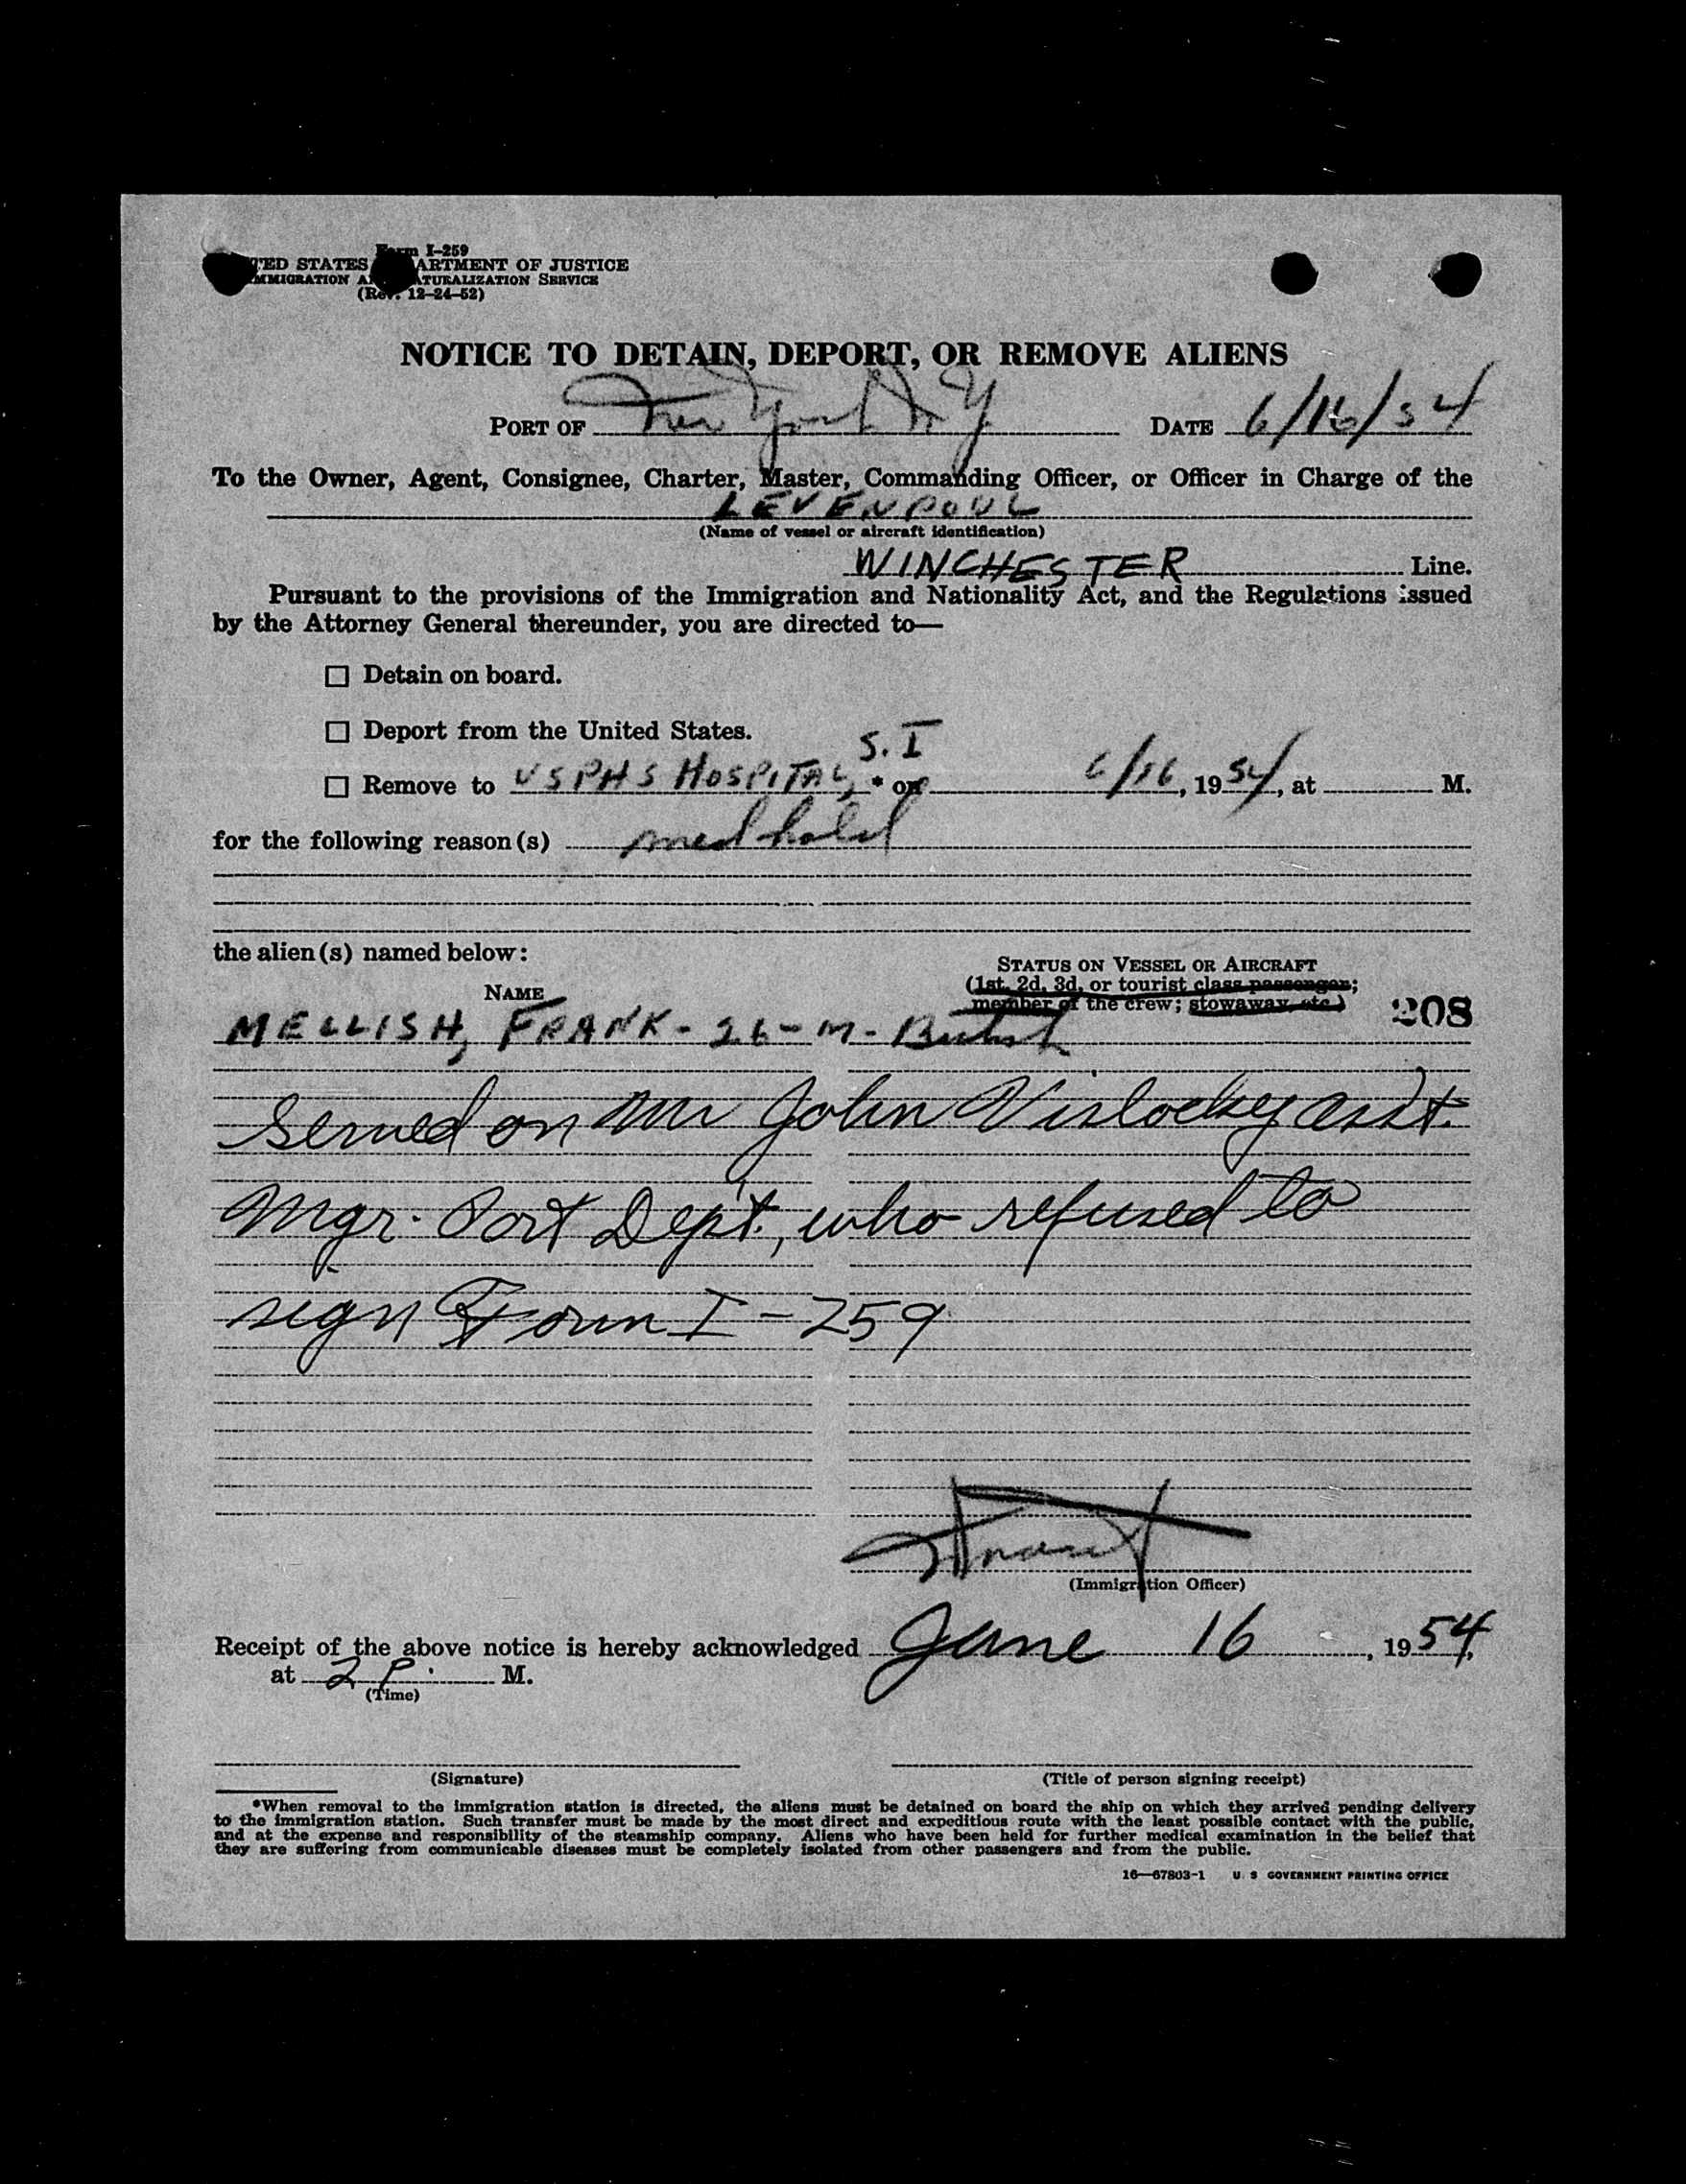 Form I-259
TED STATES ARTMENT OF JUSTICE
MMIGRATION A TURALIZATION SERVICE
(Rev. 12-24-52)
NOTICE TO DETAIN, DEPORT, OR REMOVE ALIENS
PORT OF New York N Y DATE 6/16/54
To the Owner, Agent, Consignee, Charter, Master, Commanding Officer, or Officer in Charge of the
LEVENPOUL
(Name of vessel or aircraft identification)
WINCHESTER Line.
Pursuant to the provisions of the Immigration and Nationality Act, and the Regulations issued
by the Attorney General thereunder, you are directed to—
☐ Detain on board.
☐ Deport from the United States.
S. I
☐ Remove to USPHS HOSPITAL, * on 6/16, 1954, at M.
for the following reason(s) med hold
the alien(s) named below:
STATUS ON VESSEL OR AIRCRAFT
(1st, 2d, 3d, or tourist class passenger;
NAME
member of the crew; stowaway, etc.)
208
MELLISH, FRANK - 26 - M - British
Served on Mr John Vislocky asst.
Mgr. Port Dep't, who refused to
sign Form I-259
(Immigration Officer)
Receipt of the above notice is hereby acknowledged June 16, 1954,
at 2 P. M.
(Time)
(Signature) (Title of person signing receipt)
*When removal to the immigration station is directed, the aliens must be detained on board the ship on which they arrived pending delivery
to the immigration station. Such transfer must be made by the most direct and expeditious route with the least possible contact with the public,
and at the expense and responsibility of the steamship company. Aliens who have been held for further medical examination in the belief that
they are suffering from communicable diseases must be completely isolated from other passengers and from the public.
16—67803-1 U. S. GOVERNMENT PRINTING OFFICE